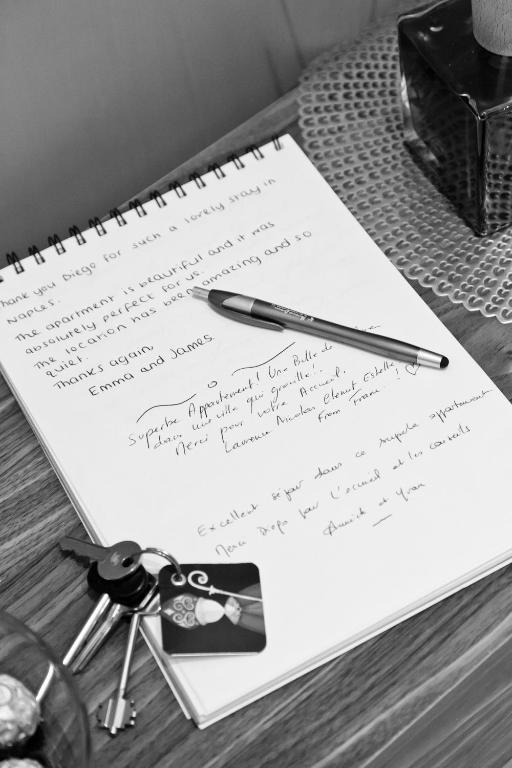 Thank you Diego for such a lovely stay in
Naples.
The apartment is beautiful and it was
absolutely perfect for us.
The location has been amazing and so
quiet.
Thanks again
Emma and James.
Superbe Appartement! Une Bulle de
dans une ville qui grouille!.
Merci pour votre Accueil.
Laurence Nicolas Clement Estelle
From France!
Excellent séjour dans ce superbe appartement
Merci Diego pour l'accueil et les conseils
Annick et Yvan